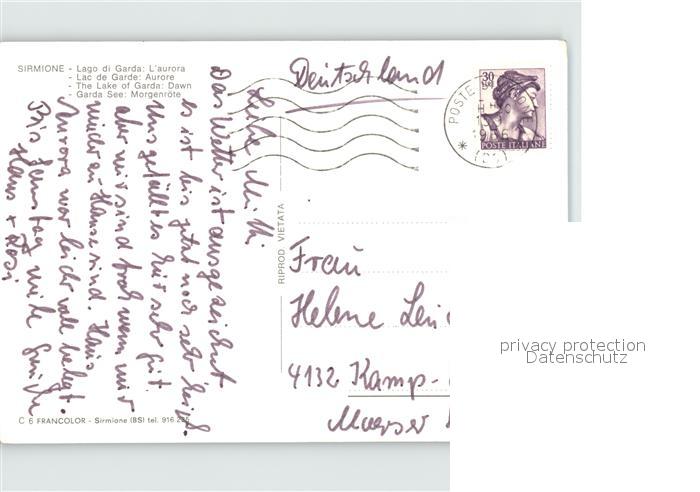 SIRMIONE - Lago di Garda: L'aurora
- Lac de Garde: Aurore
- The Lake of Garda: Dawn
- Garda See: Morgenröte
Liebe
Das Wetter ist ausgezeichnet
es ist bis jetzt noch sehr heiß.
Uns gefällt es hier sehr gut.
aber wir sind froh wenn wir
wieder zu Hause sind. Haus
Aurora war leider voll belegt.
Bis Samstag viele Grüße
Hans +
RIPROD VIETATA
Deutschland
POSTE
30
POSTE ITALIANE
Frau
Helene
4132 Kamp-
Moerser
C 6 FRANCOLOR - Sirmione (BS) tel. 916
privacy protection
Datenschutz